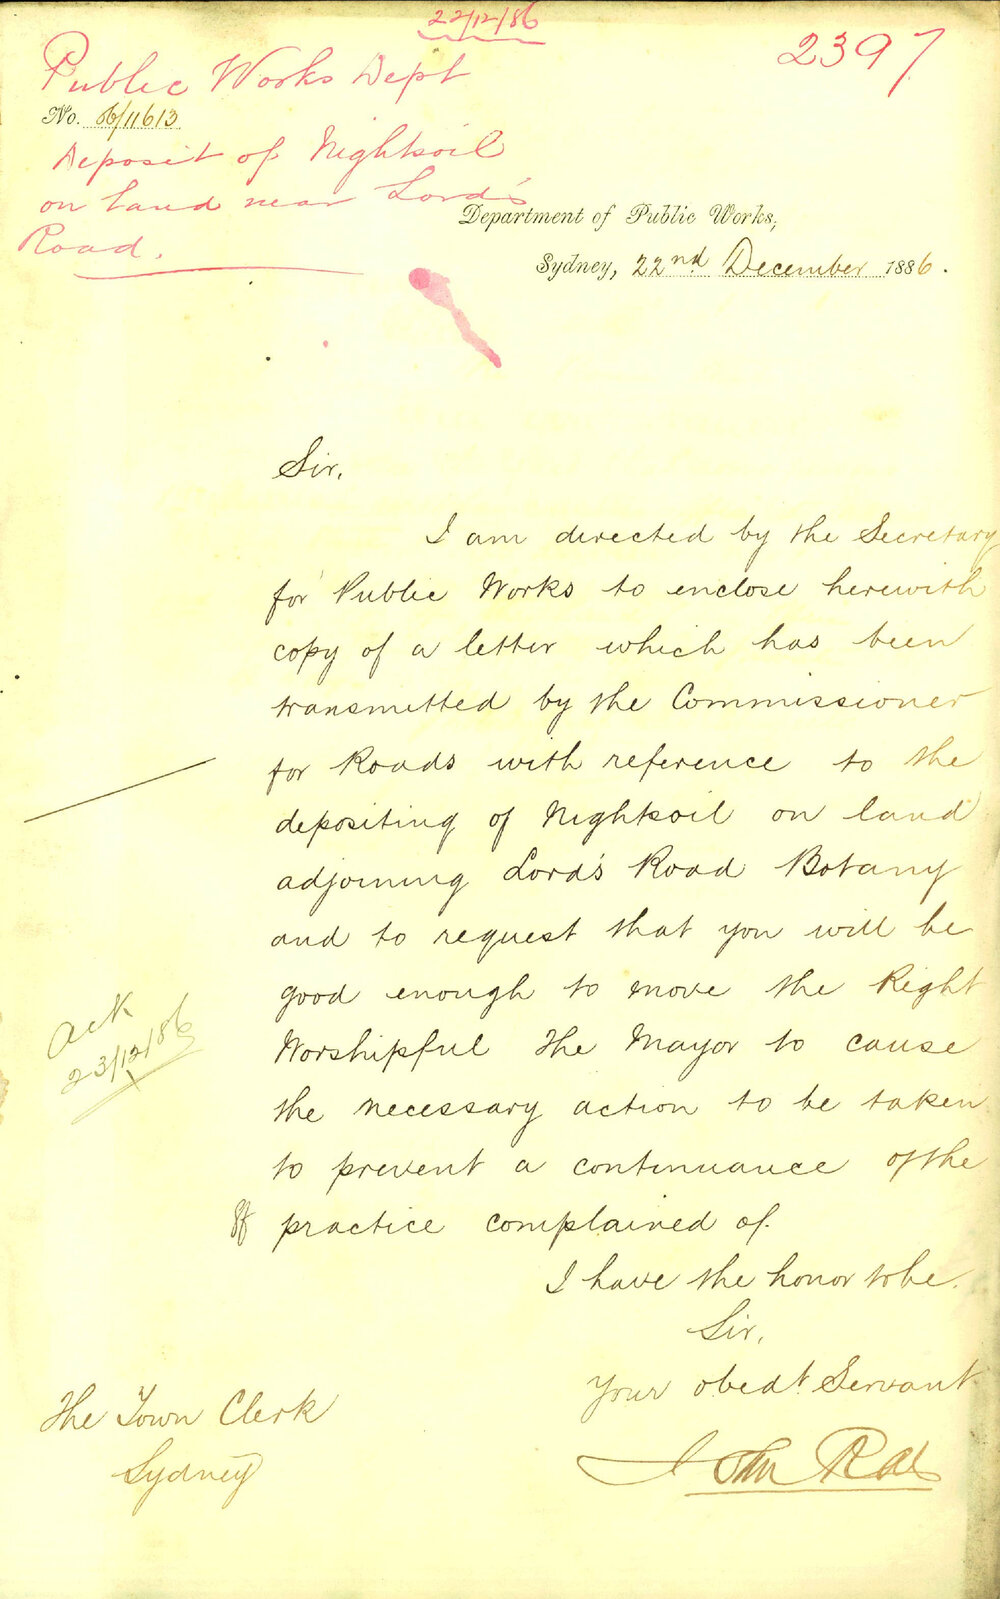 22/12/86
2397
Public Works Dept
No. 86/11613
Deposit of Nightsoil
on land near Lord's
Road.
Department of Public Works,
Sydney, 22nd December 1886.
Sir,
I am directed by the Secretary
for Public Works to enclose herewith
copy of a letter which has been
transmitted by the Commissioner
for Roads with reference to the
depositing of Nightsoil on land
adjoining Lord's Road Botany
and to request that you will be
good enough to move the Right
Worshipful the Mayor to cause
the necessary action to be taken
to prevent a continuance of the
practice complained of.
Ack
23/12/86
I have the honor to be.
Sir,
Your obedt Servant
John Rae
The Town Clerk
Sydney